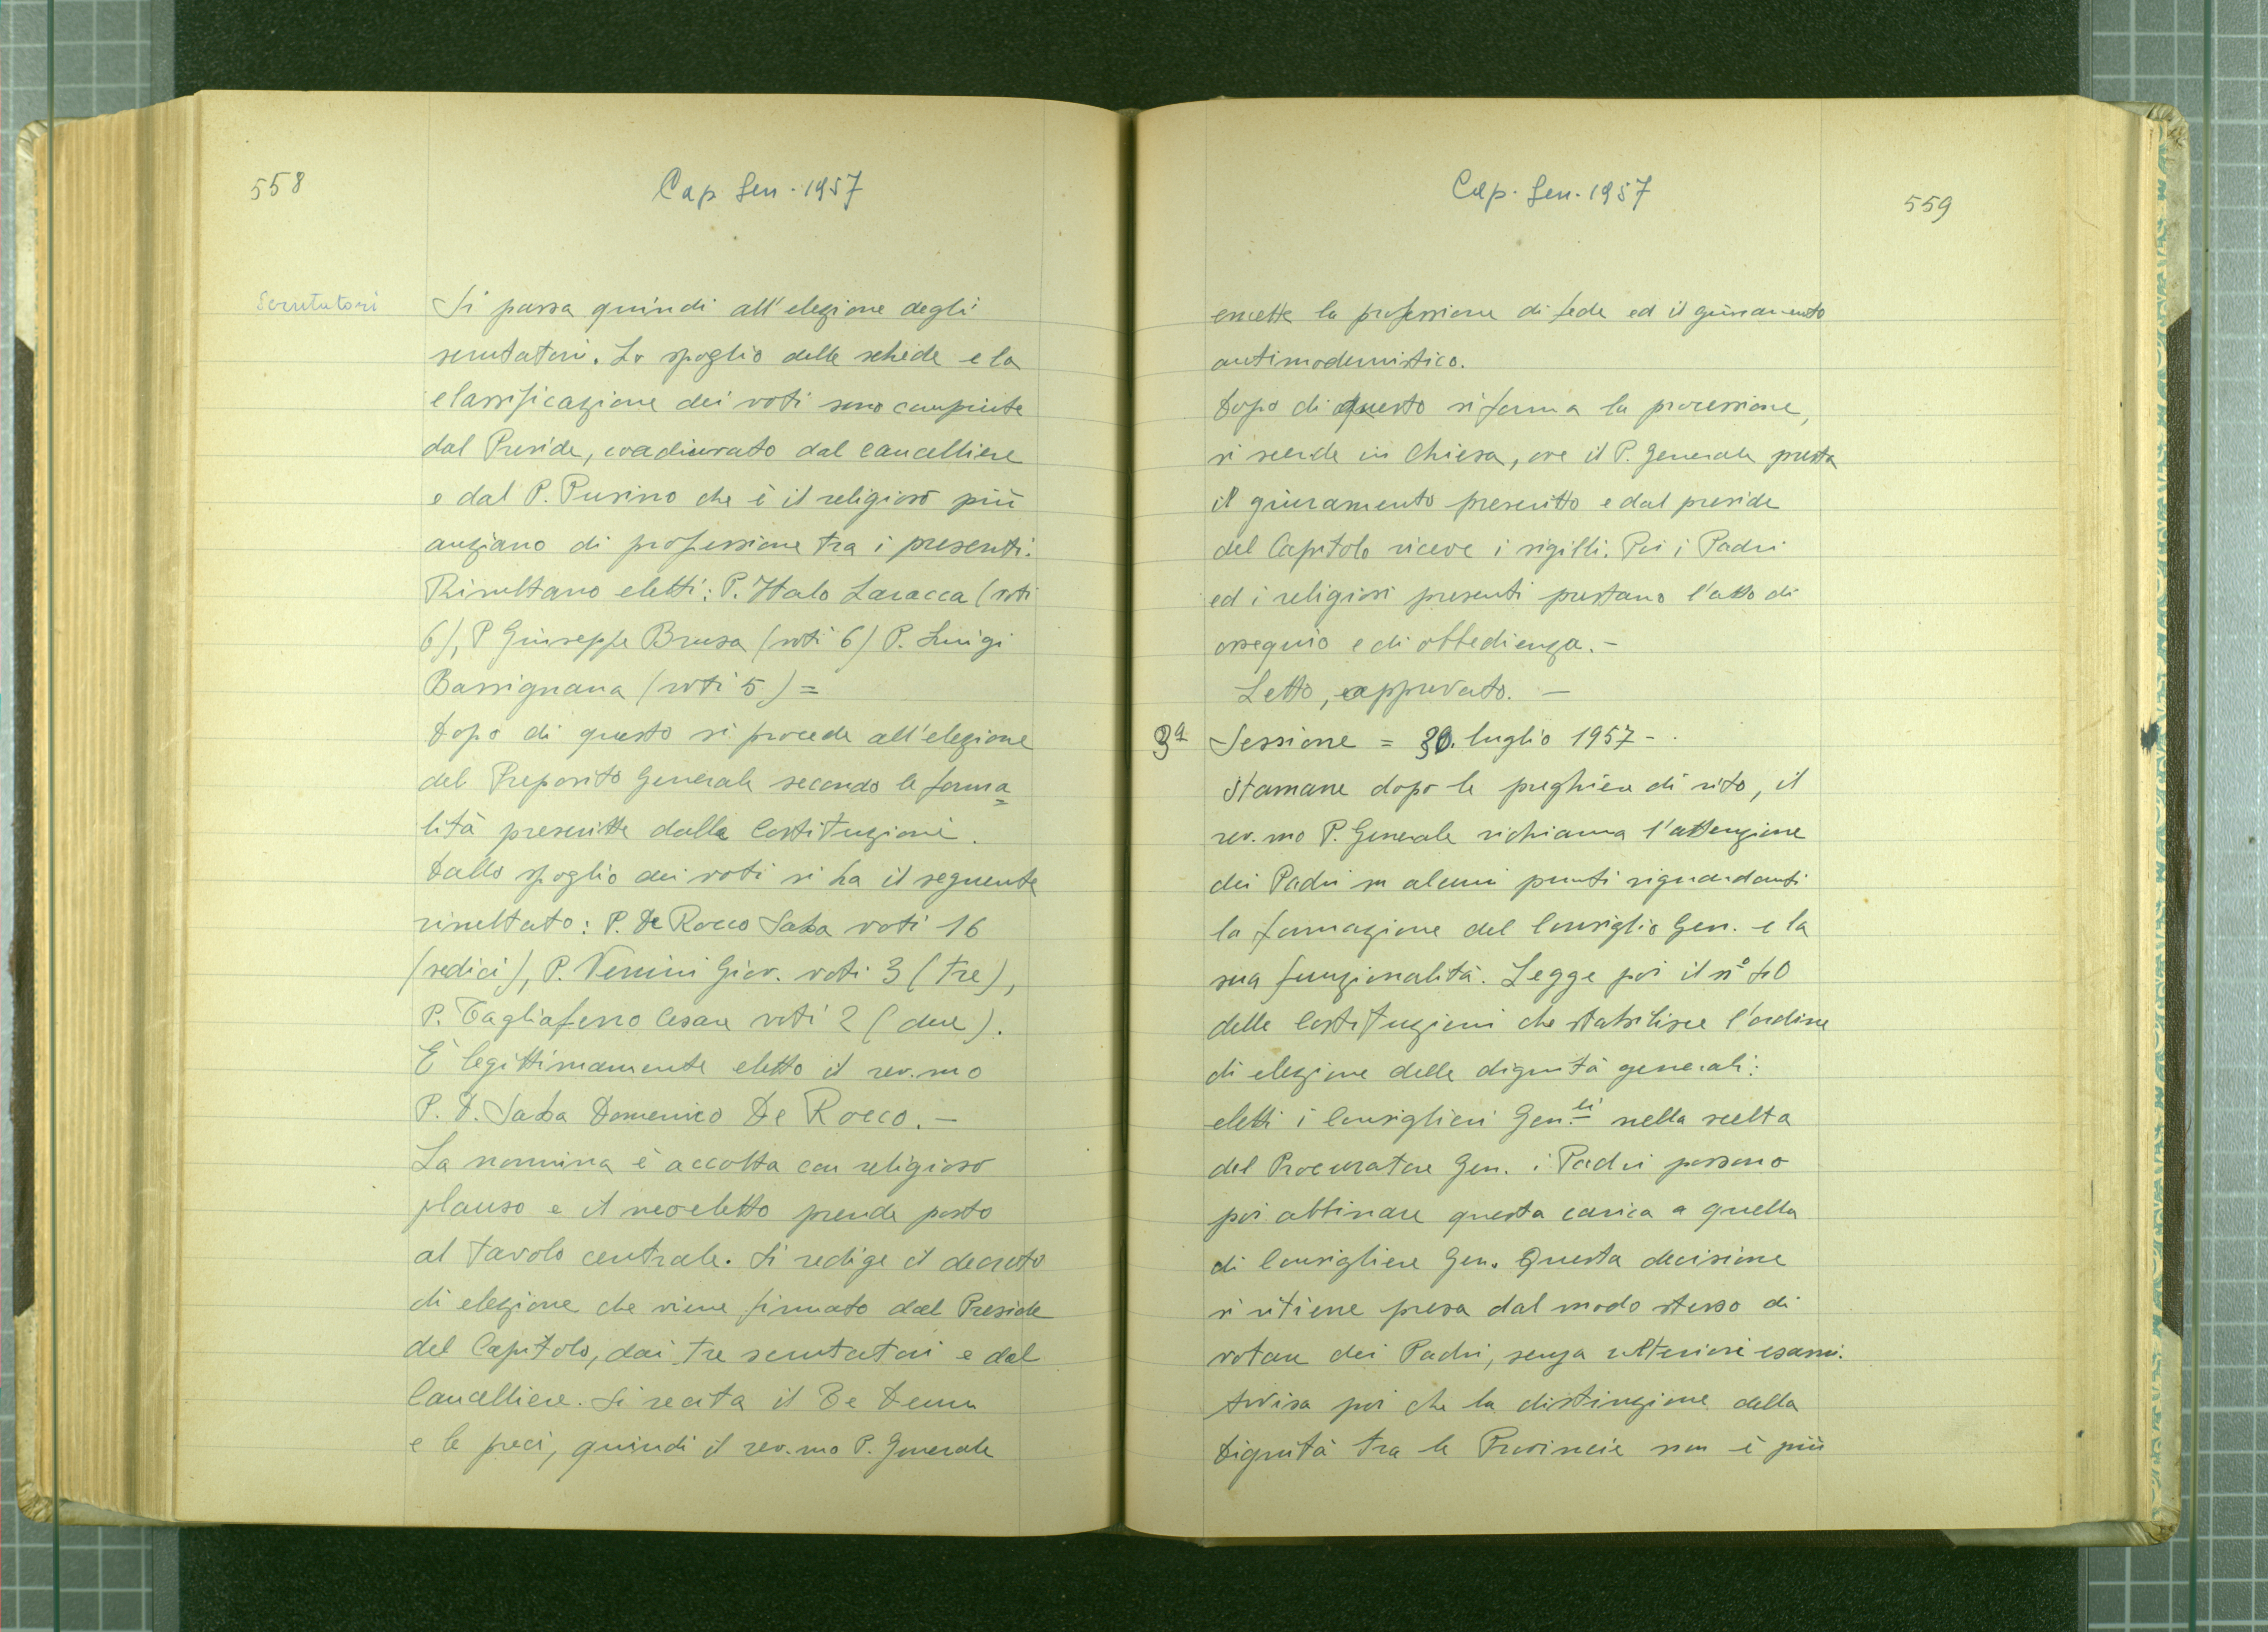 558
Cap. Gen. 1957
Scrutatori
Si passa quindi all'elezione degli
scrutatori. Lo spoglio delle schede e la
classificazione dei voti sono compiute
dal Preside, coadiuvato dal cancelliere
e dal P. Pusino che è il religioso più
anziano di professione tra i presenti.
Risultano eletti: P. Italo Laracca (voti
6), P Giuseppe Brusa (voti 6) P. Luigi
Bassignana (voti 5) =
Dopo di questo si procede all'elezione
del Preposito Generale secondo le forma=
lità prescritte dalle Costituzioni.
Dallo spoglio dei voti si ha il seguente
risultato: P. De Rocco Saba voti 16
(sedici), P. Venini Giov. voti 3 (tre),
P. Tagliaferro Cesare voti 2 (due).
È legittimamente eletto il rev.mo
P. D. Saba Domenico De Rocco. -
La nomina è accolta con religioso
plauso e il neoeletto prende posto
al tavolo centrale. Si redige il decreto
di elezione che viene firmato dal Preside
del Capitolo, dai tre scrutatori e dal
Cancelliere. Si recita il Te Deum
e le preci, quindi il rev.mo P. Generale
Cap. Gen. 1957
559
emette la professione di fede ed il giuramento
antimodernistico.
Dopo di questo si forma la processione,
si scende in Chiesa, ove il P. Generale presta
il giuramento prescritto e dal preside
del Capitolo riceve i sigilli. Poi i Padri
ed i religiosi presenti prestano l'atto di
ossequio e di obbedienza. -
Letto, approvato. -
3ª Sessione = 30. luglio 1957 -
Stamane dopo le preghiere di rito, il
rev.mo P. Generale richiama l'attenzione
dei Padri su alcuni punti riguardanti
la formazione del Consiglio Gen. e la
sua funzionalità. Legge poi il nº
delle Costituzioni che stabilisce l'ordine
di elezione delle dignità generali:
eletti i Consiglieri Gen.li nella scelta
del Procuratore Gen. i Padri possono
poi abbinare questa carica a quella
di Consigliere Gen. Questa decisione
si ritiene presa dal modo stesso di
votare dei Padri, senza ulteriori esami.
Avvisa poi che la distinzione della
Dignità tra le Provincie non è più